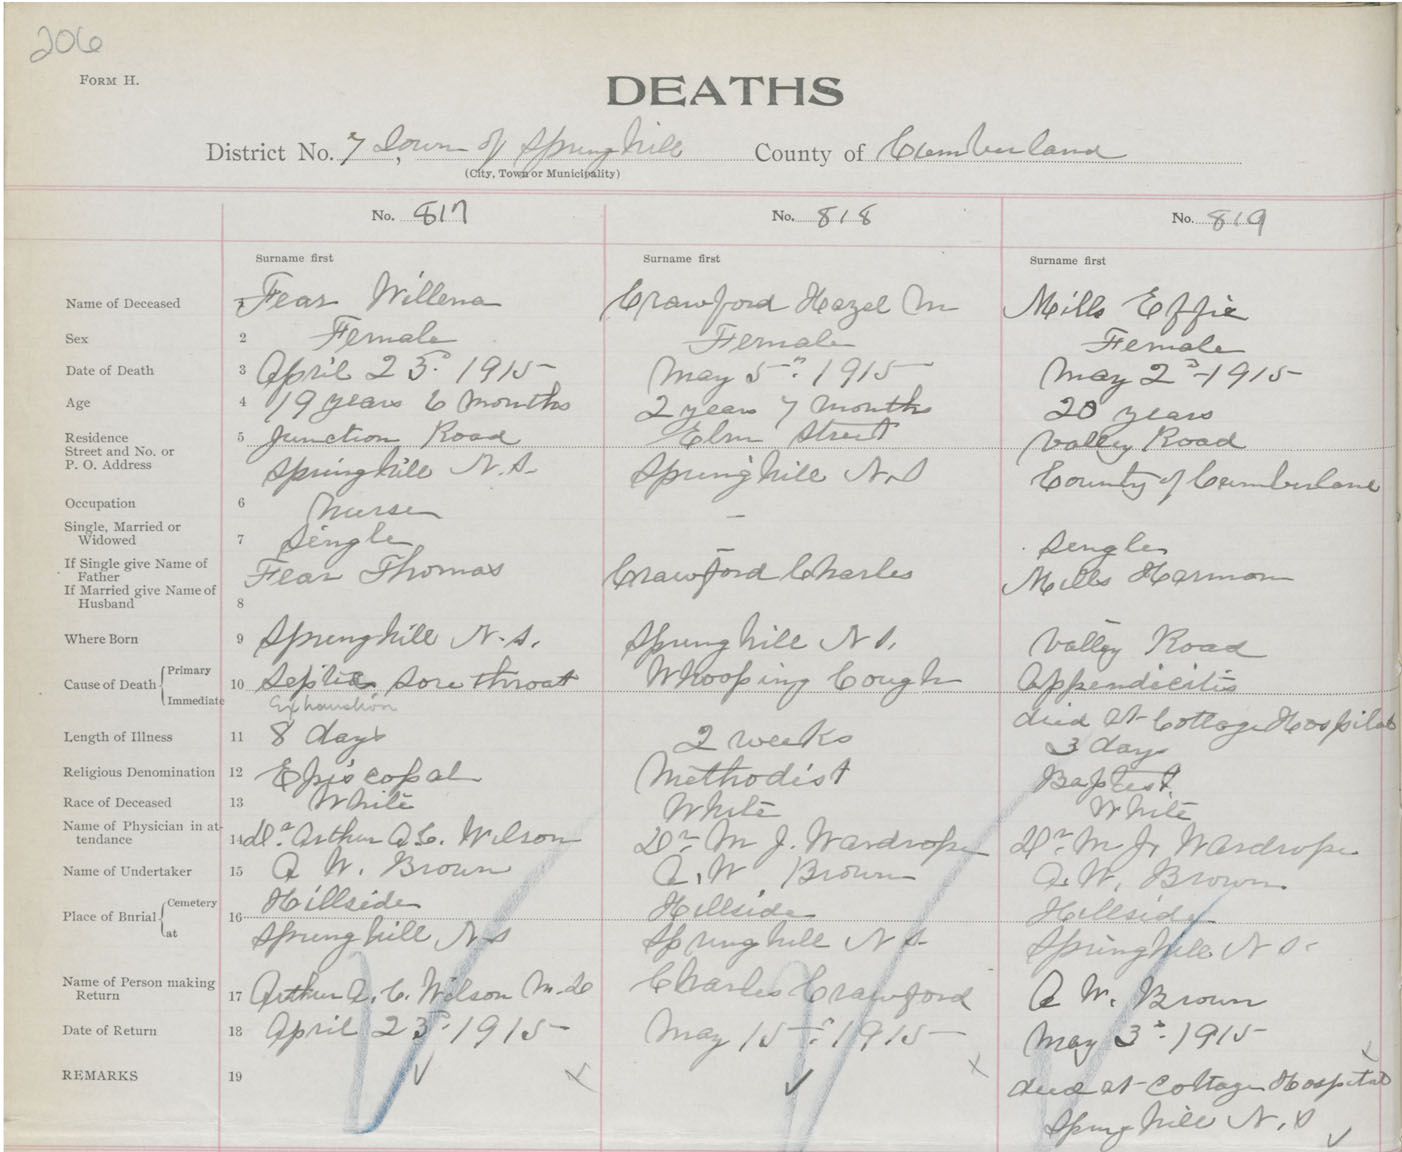 206
FORM H.
DEATHS
District No. 7, Town of Springhill County of Cumberland
(City, Town or Municipality)
No. 817 No. 818 No. 819
Surname first Surname first Surname first
Name of Deceased 1 Fear Willena Crawford Hazel M Mills Effie
Sex 2 Female Female Female
Date of Death 3 April 23d. 1915 May 5th. 1915 May 2d 1915
Age 4 19 years 6 months 2 years 7 months 20 years
Residence Street and No. or P. O. Address 5 Junction Road Elm Street Valley Road
Springhill N.S. Springhill N.S County of Cumberland
Occupation 6 Nurse –
Single, Married or Widowed 7 Single – Single
If Single give Name of Father Fear Thomas Crawford Charles Mills Harmon
If Married give Name of Husband 8
Where Born 9 Springhill N.S. Springhill N S. Valley Road
Cause of Death Primary 10 Septic Sore throat Whooping Cough Appendicitis
Immediate Exhaustion died at Cottage Hospital
Length of Illness 11 8 days 2 weeks 3 days
Religious Denomination 12 Episcopal Methodist Baptist
Race of Deceased 13 White White White
Name of Physician in attendance 14 Dr. Arthur A.C. Wilson Dr. M J. Wardrope Dr. M J. Wardrope
Name of Undertaker 15 A W. Brown A. W Brown A. W. Brown
Place of Burial Cemetery 16 Hillside Hillside Hillside
at Springhill N S Springhill N S. Springhill N S.
Name of Person making Return 17 Arthur A. C. Wilson M.D Charles Crawford A W. Brown
Date of Return 18 April 23d. 1915 May 15th. 1915 May 3d. 1915
REMARKS 19 died at Cottage Hospital
Springhill N. S